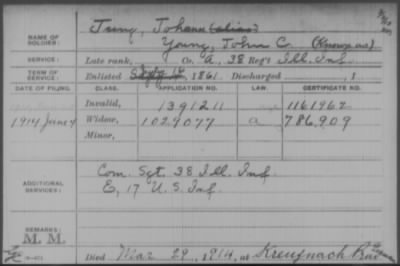 NAME OF SOLDIER:
Jung, Johann (alias)
Young, John C. (Known as)
SERVICE:
Late rank, Co. A, 38 Reg't Ill. Inf
TERM OF SERVICE:
Enlisted 1861. Discharged , 1
DATE OF FILING. CLASS. APPLICATION NO. LAW. CERTIFICATE NO.
Invalid, 1391211 1161962
1914 June 4 Widow, 1029077 a 786.909
Minor,
ADDITIONAL SERVICES:
Com. Sgt. 38 Ill. Inf
E, 17 U. S. Inf.
REMARKS:
M. M.
Died Mar 29, 1914, at Kreuznach